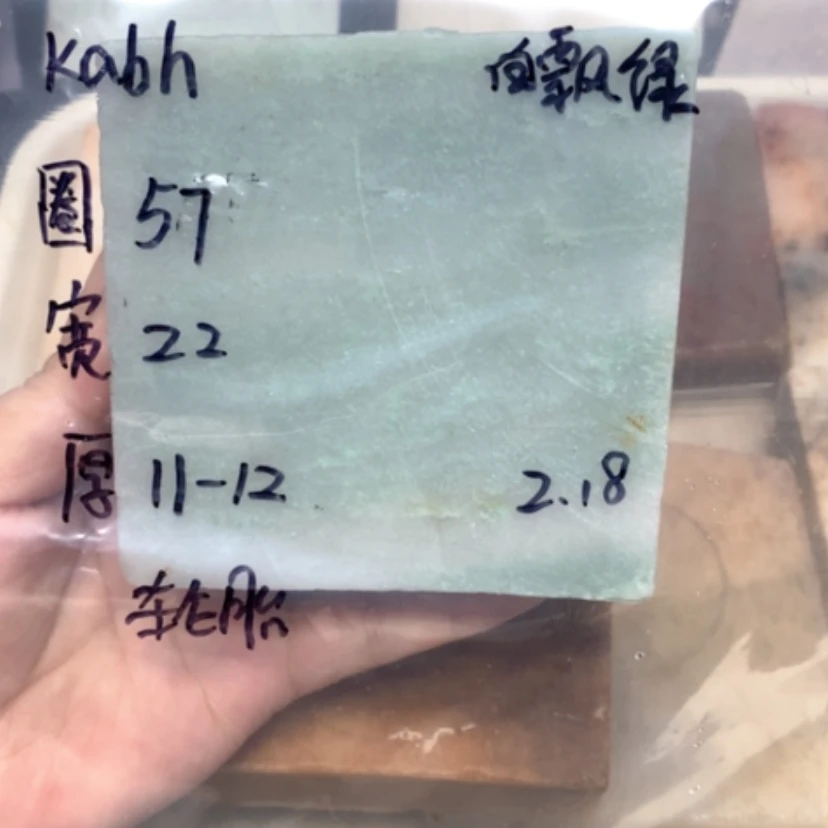 Kabh 白飘绿
圈 57
宽 22
厚 11-12 2.18
轮胎